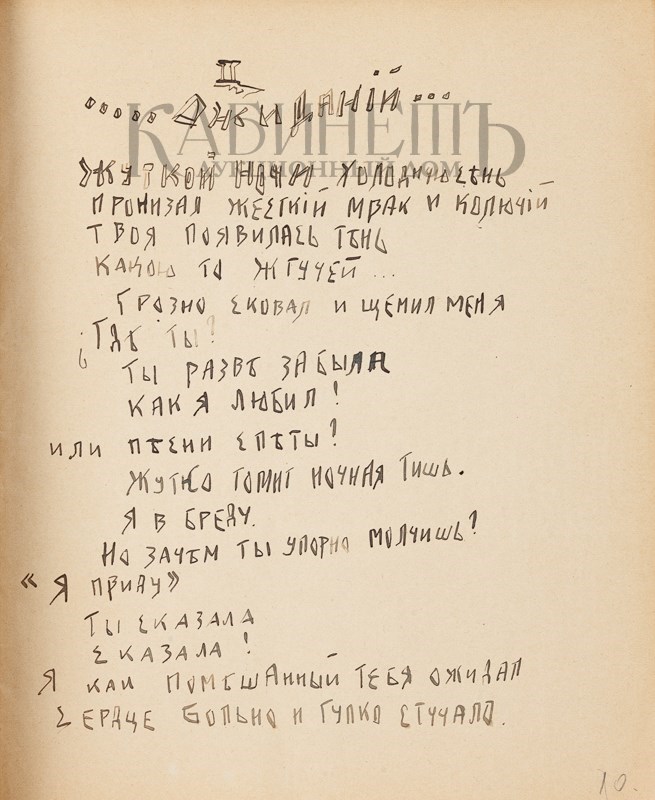 II
..... Ожиданій ...
КАБИНЕТЪ
АУКЦИОННЫЙ ДОМ
Жуткой ночи холодную сѣнь
пронизал жесткій мрак и колючій
твоя появилась тѣнь
какою то жгучей ...
Грозно сковал и щемил меня
¿Гдѣ ты?
ты развѣ забыла
как я любил!
или пѣсни спѣты?
Жутко томит ночная тишь.
Я в бреду.
Но зачѣм ты упорно молчишь?
«Я приду»
Ты сказала
сказала!
Я как помѣшанный тебя ожидал
Сердце больно и гулко стучало.
10.